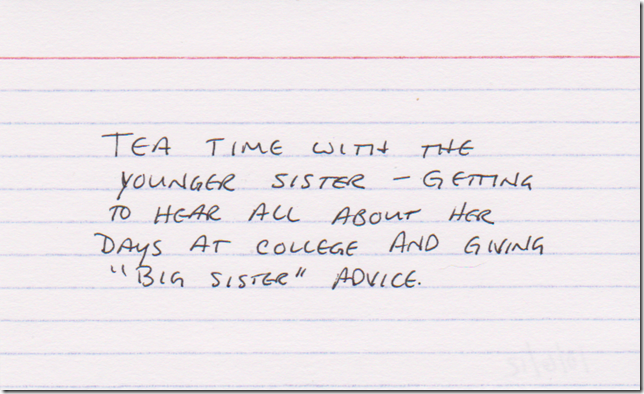 TEA TIME WITH THE
YOUNGER SISTER – GETTING
TO HEAR ALL ABOUT HER
DAYS AT COLLEGE AND GIVING
"BIG SISTER" ADVICE.